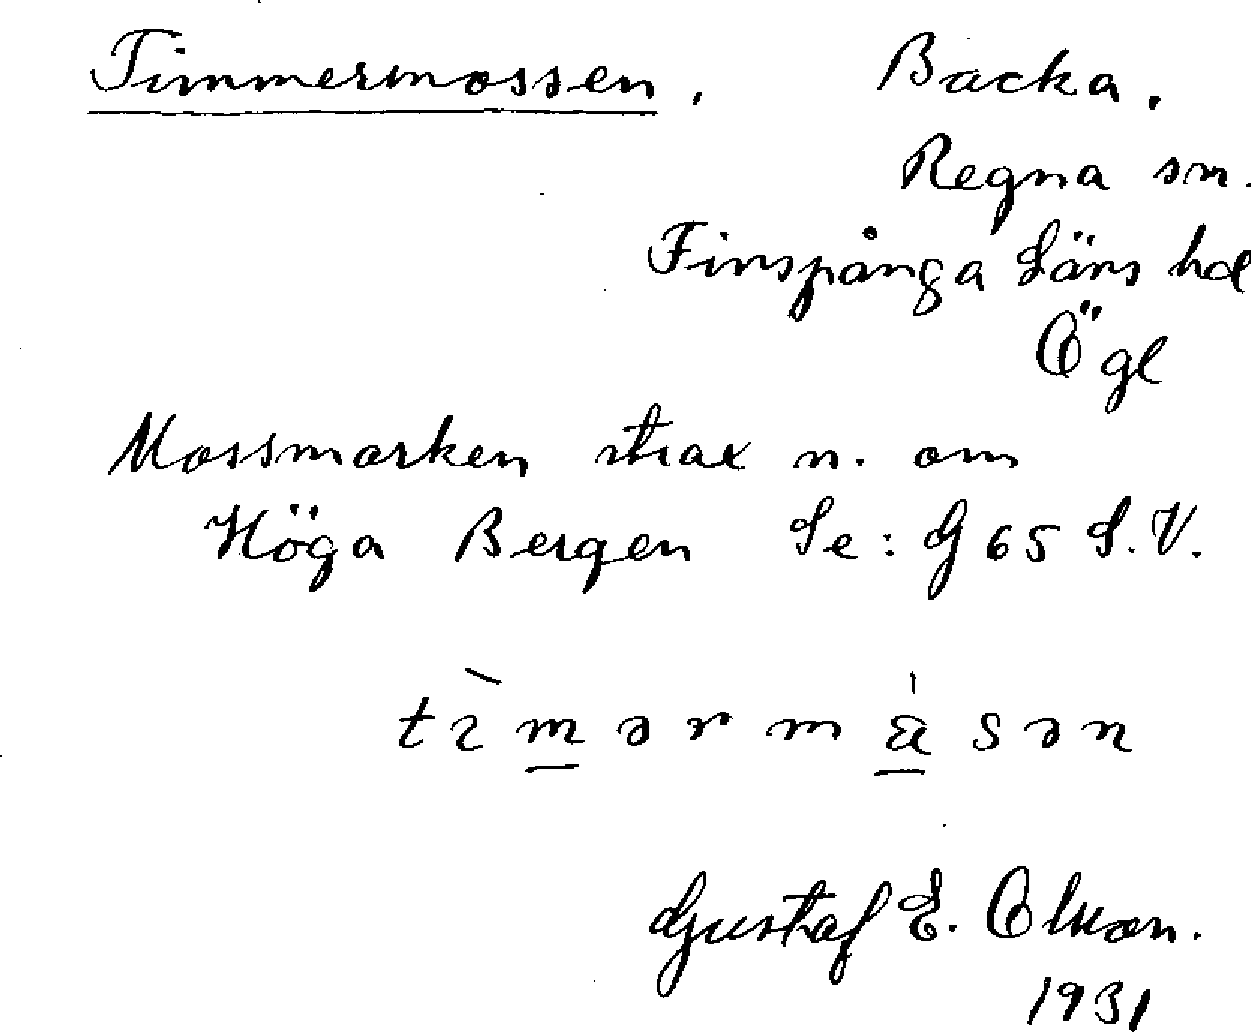 Timmermossen. Backa.
Regna sn.
Finspånga Läns hd
Ögl
Mossmarken strax n. om
Höga Bergen Se: G 65 S.V.
Gustaf E. Olson.
1931